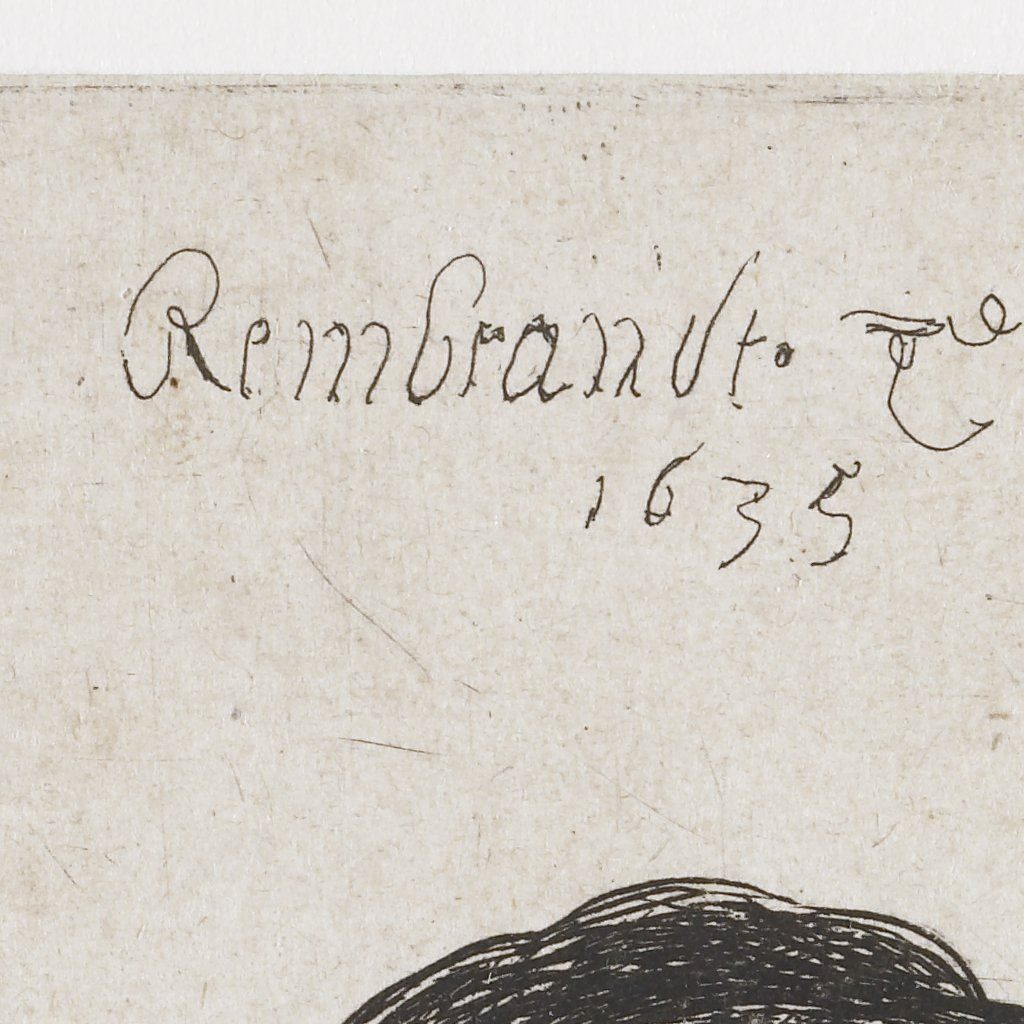 Rembrandt.
1635